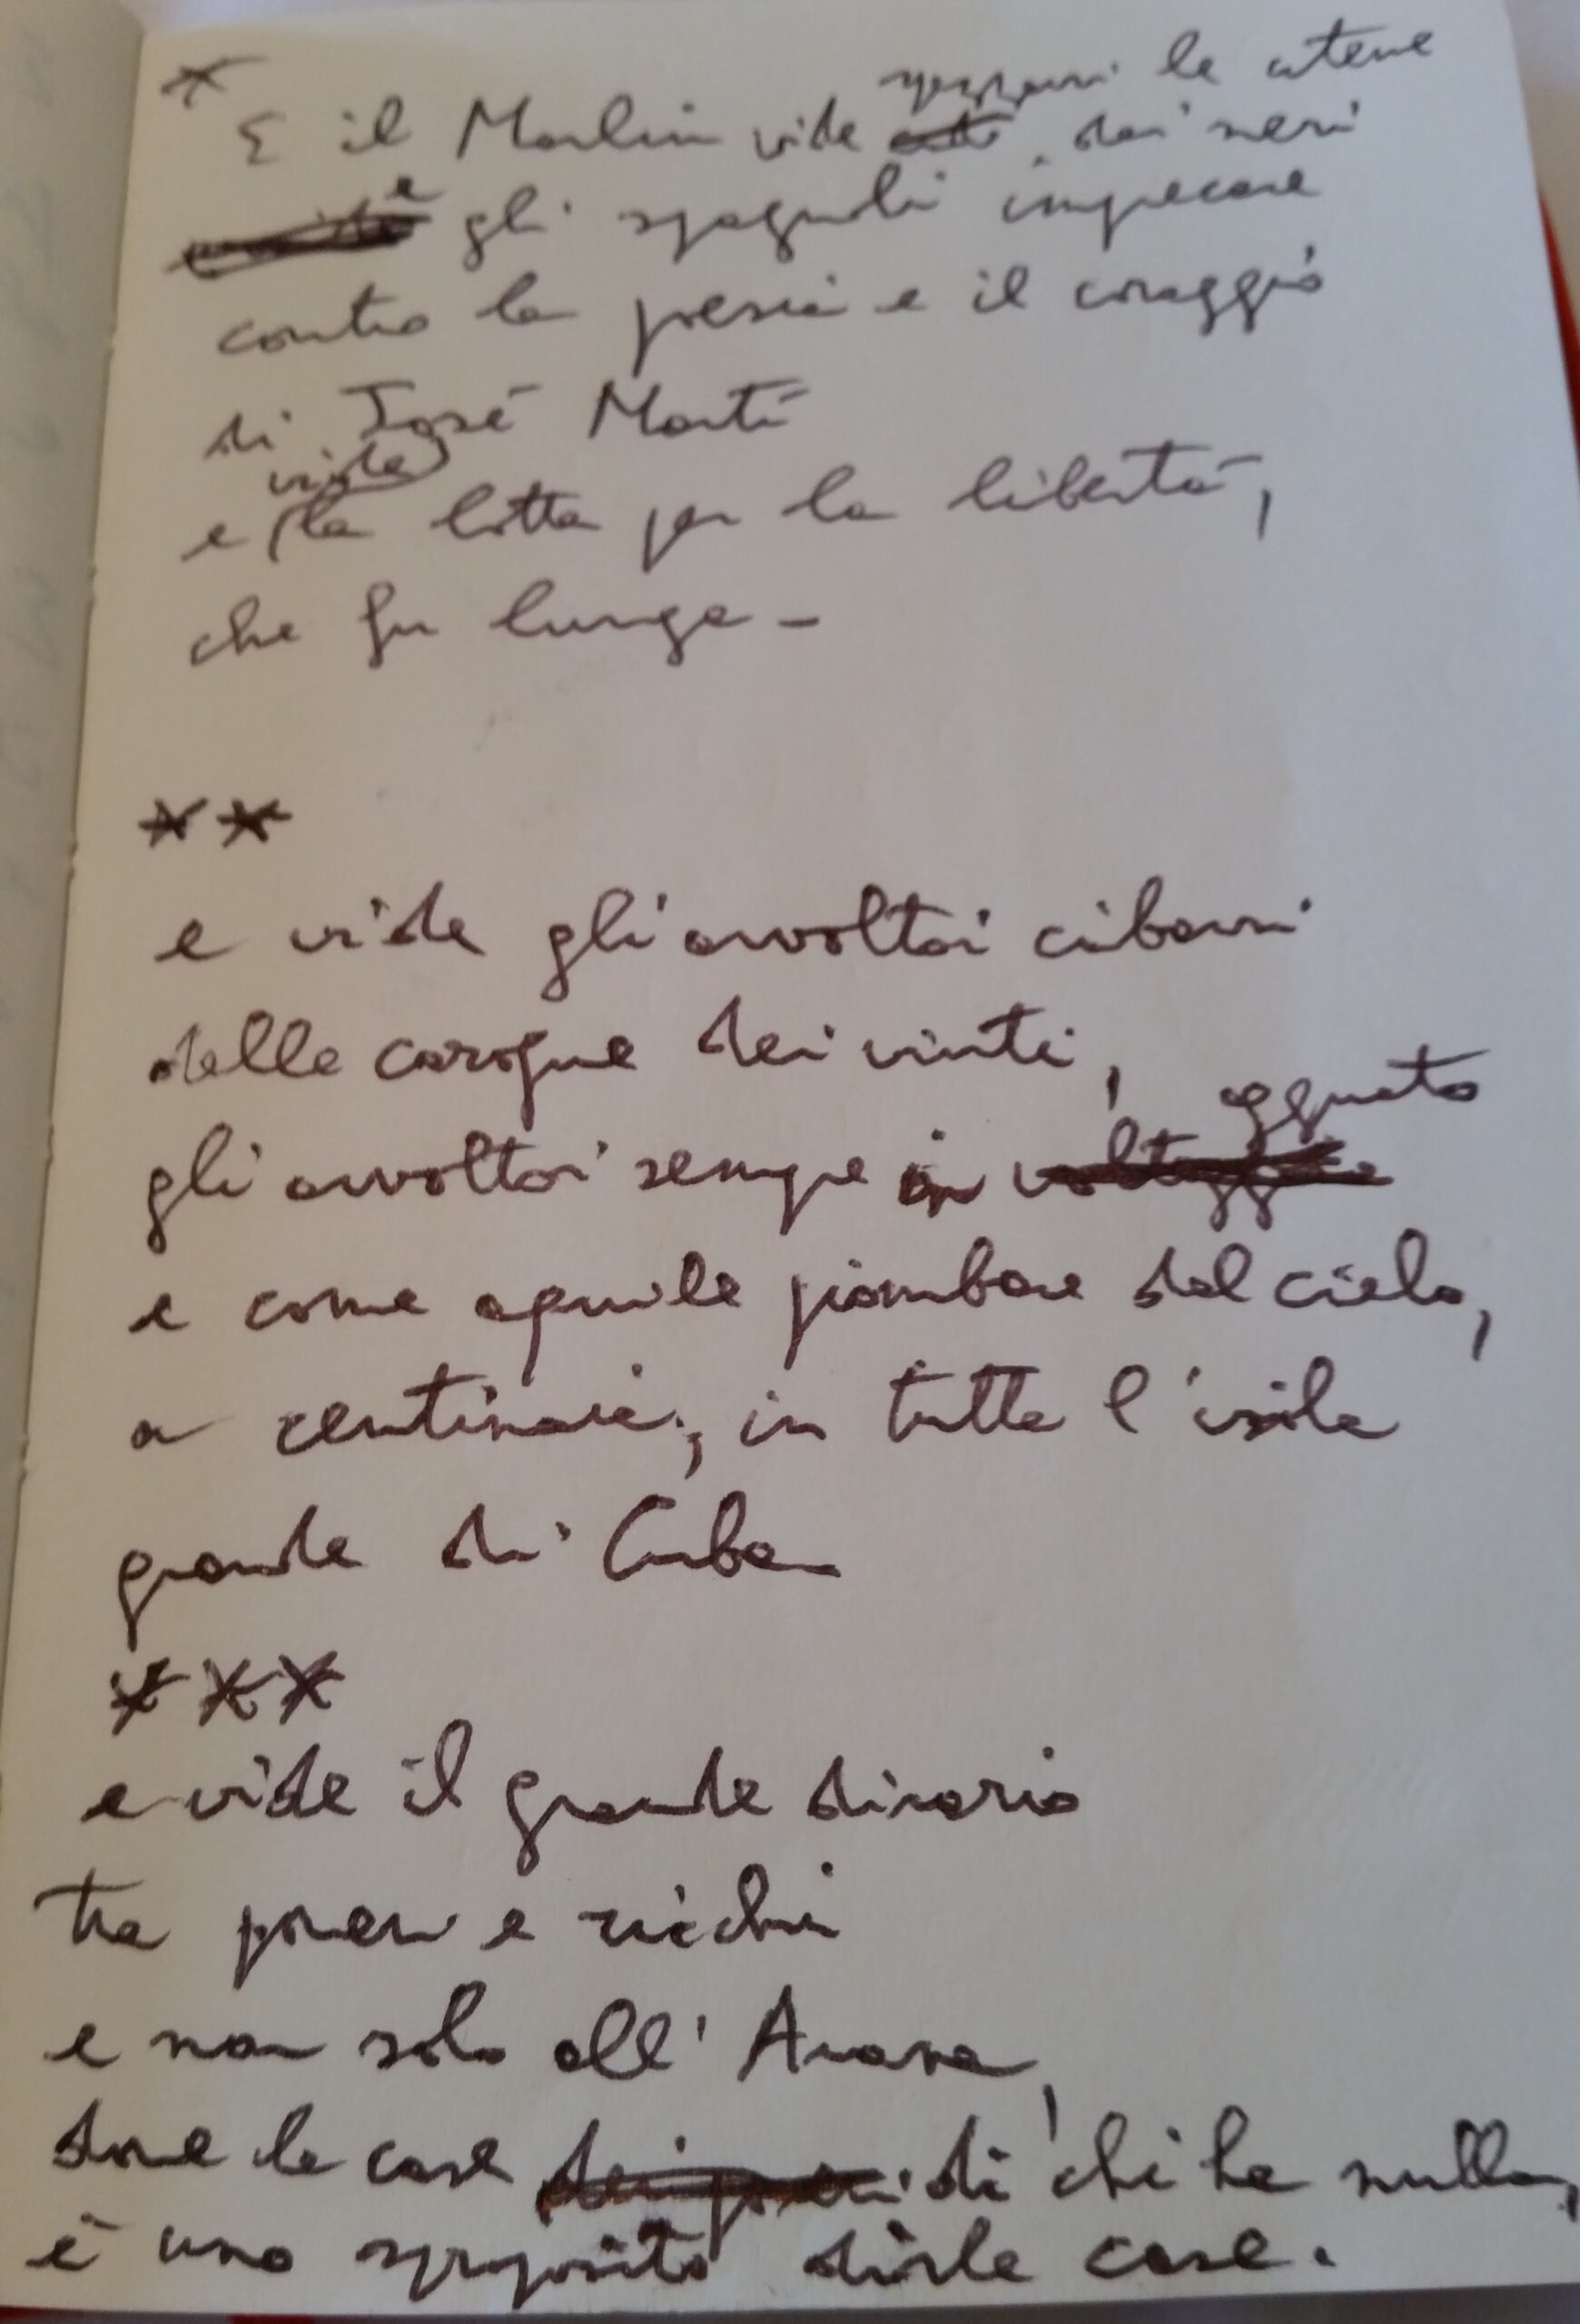 *
spezzarsi le catene
E il Marlin vide dei neri
e gli spagnoli imprecare
contro la poesia e il coraggio
di José Martí
vide
e la lotta per la libertà,
che fu lunga -
**
e vide gli avvoltoi cibarsi
delle carogne dei vinti,
agguato
gli avvoltoi sempre in volteggio
e come aquile piombare dal cielo,
a centinaia, in tutta l'isola
grande di Cuba
***
e vide il grande divario
tra poveri e ricchi
e non solo all'Avana,
dove le case dei poveri di chi ha nulla,
è uno sproposito dirle case.